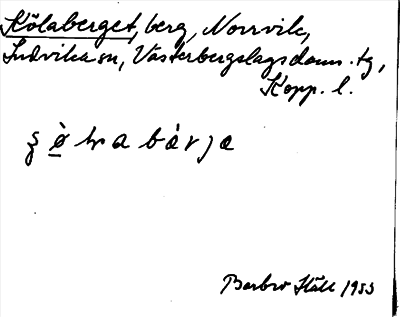 Kölaberget, berg, Norrvik,
Ludvika sn, Västerbergslags doms. tg,
Kopp. l.
bárja
Barbro Ståll 1933